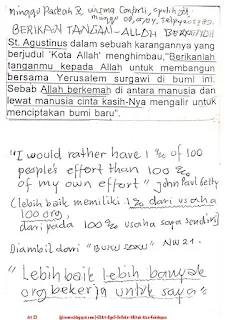 minggu Paskah
BERIKAN TANGAN-ALLAH BERKEMAH
St. Agustinus dalam sebuah karangannya yang
berjudul 'Kota Allah' menghimbau,"Berikanlah
tanganmu kepada Allah untuk membangun
bersama Yerusalem surgawi di bumi ini.
Sebab Allah berkemah di antara manusia dan
lewat manusia cinta kasih-Nya mengalir untuk
menciptakan bumi baru".
"I would rather have 1 % of 100
people's effort than 100 %
of my own effort" John Paul Getty
(lebih baik memiliki 1% dari usaha
100 org,
daripada 100% usaha saya sendiri
Diambil dari "BUKU
NW21.
"Lebih baik lebih banyak
org bekerja untuk saya"